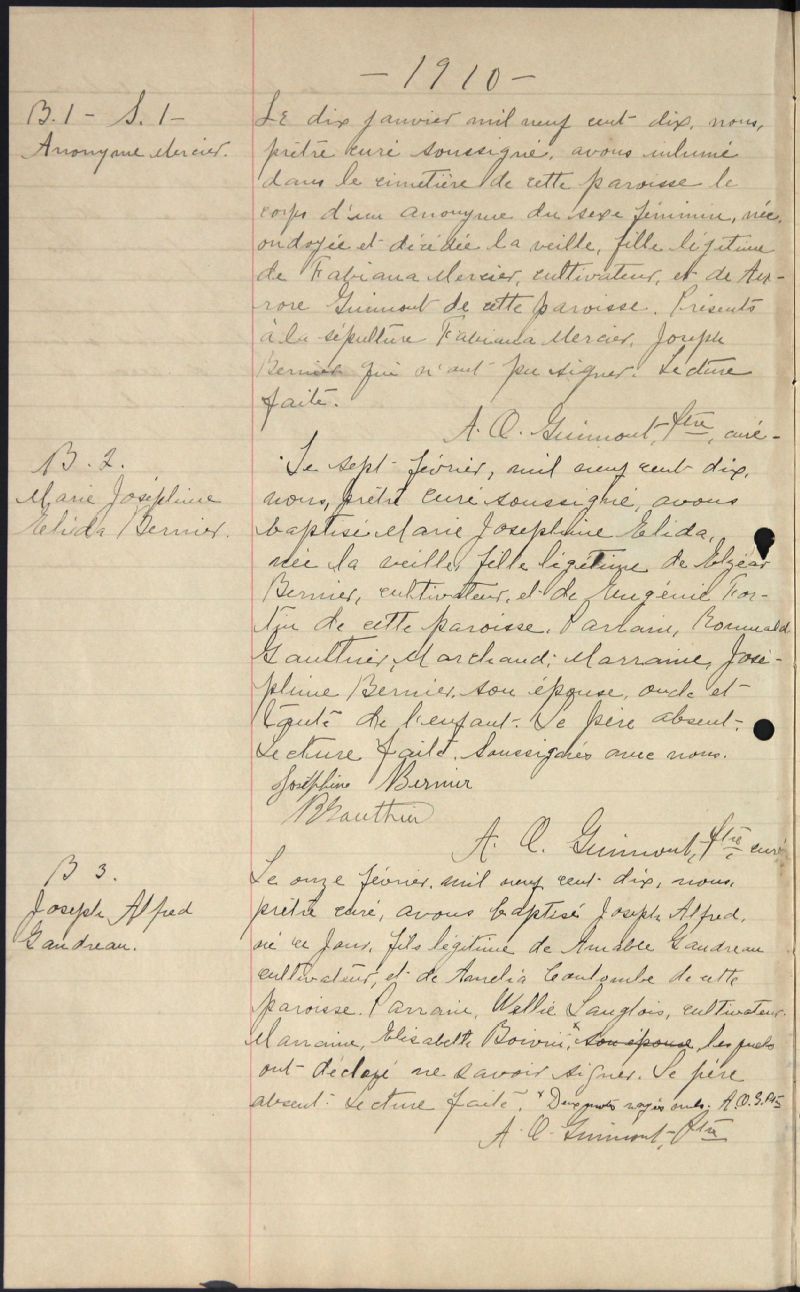 - 1910 -
B. 1 - S. 1 -
Anonyme Mercier.
Le dix janvier mil neuf cent dix, nous,
prêtre curé soussigné, avons inhumé
dans le cimetière de cette paroisse le
corps d'un anonyme du sexe féminin, née,
ondoyée et décédée la veille, fille légitime
de Fabiana Mercier, cultivateur, et de Au-
rore Guimont de cette paroisse. Présents
à la sépulture Fabiana Mercier, Joseph
Bernier qui n'ont pu signer. Lecture
faite.
A. O. Guimont, Ptre, curé -
B. 2.
Marie Joséphine
Elida Bernier.
Le sept février, mil neuf cent dix,
nous, prêtre curé soussigné, avons
baptisé Marie Joséphine Elida,
née la veille, fille légitime de Elzéar
Bernier, cultivateur, et de Eugénie For-
tin de cette paroisse. Parrain, Romuald
Gauthier, Marchand; Marraine, José-
phine Bernier, son épouse, oncle et
tante de l'enfant. Le père absent.
Lecture faite. Soussignés avec nous.
Joséphine Bernier
R Gauthier
A. O. Guimont, Ptre curé
B 3.
Joseph Alfred
Gaudreau.
Le onze février, mil neuf cent dix, nous,
prêtre curé, avons baptisé Joseph Alfred,
né ce jour, fils légitime de Amable Gaudreau
cultivateur, et de Amelia Coulombe de cette
paroisse. Parrain, Wellie Langlois, cultivateur.
Marraine, Elisabeth Boivin, x son épouse, lesquels
ont déclaré ne savoir signer. Le père
absent. Lecture faite. x Deux mots rayés nuls. A.O.G. Ptre
A. O. Guimont, Ptre